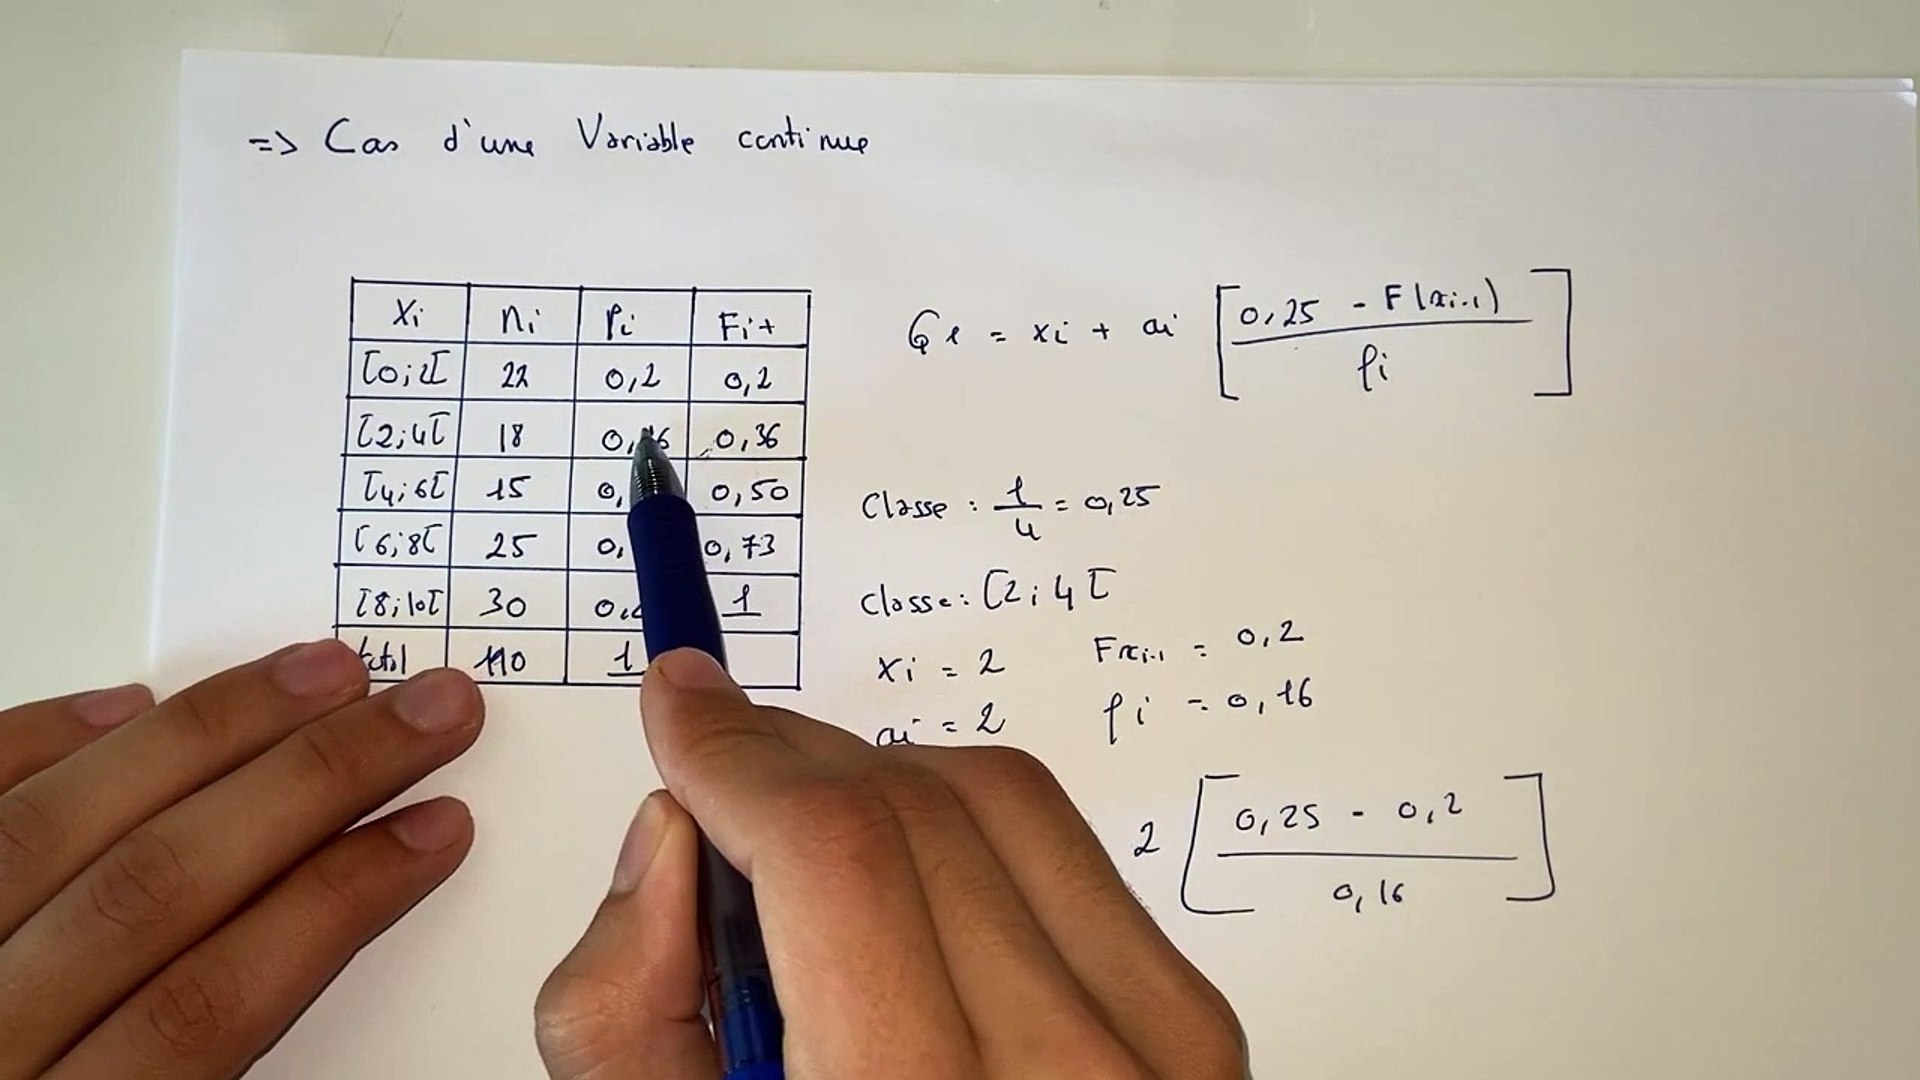 => Cas d'une Variable continue
Xi ni fi Fi+
[0;2[ 22 0,2 0,2
[2;4[ 18 0,16 0,36
[4;6[ 15 0, 0,50
[6;8[ 25 0, 0,73
[8;10[ 30 0,2 1
total 110 1
Q1 = xi + ai [ 0,25 - F(xi-1) / fi ]
Classe : 1/4 = 0,25
Classe : [2;4[
xi = 2 Fxi-1 = 0,2
ai = 2 fi = 0,16
2 [ 0,25 - 0,2 / 0,16 ]